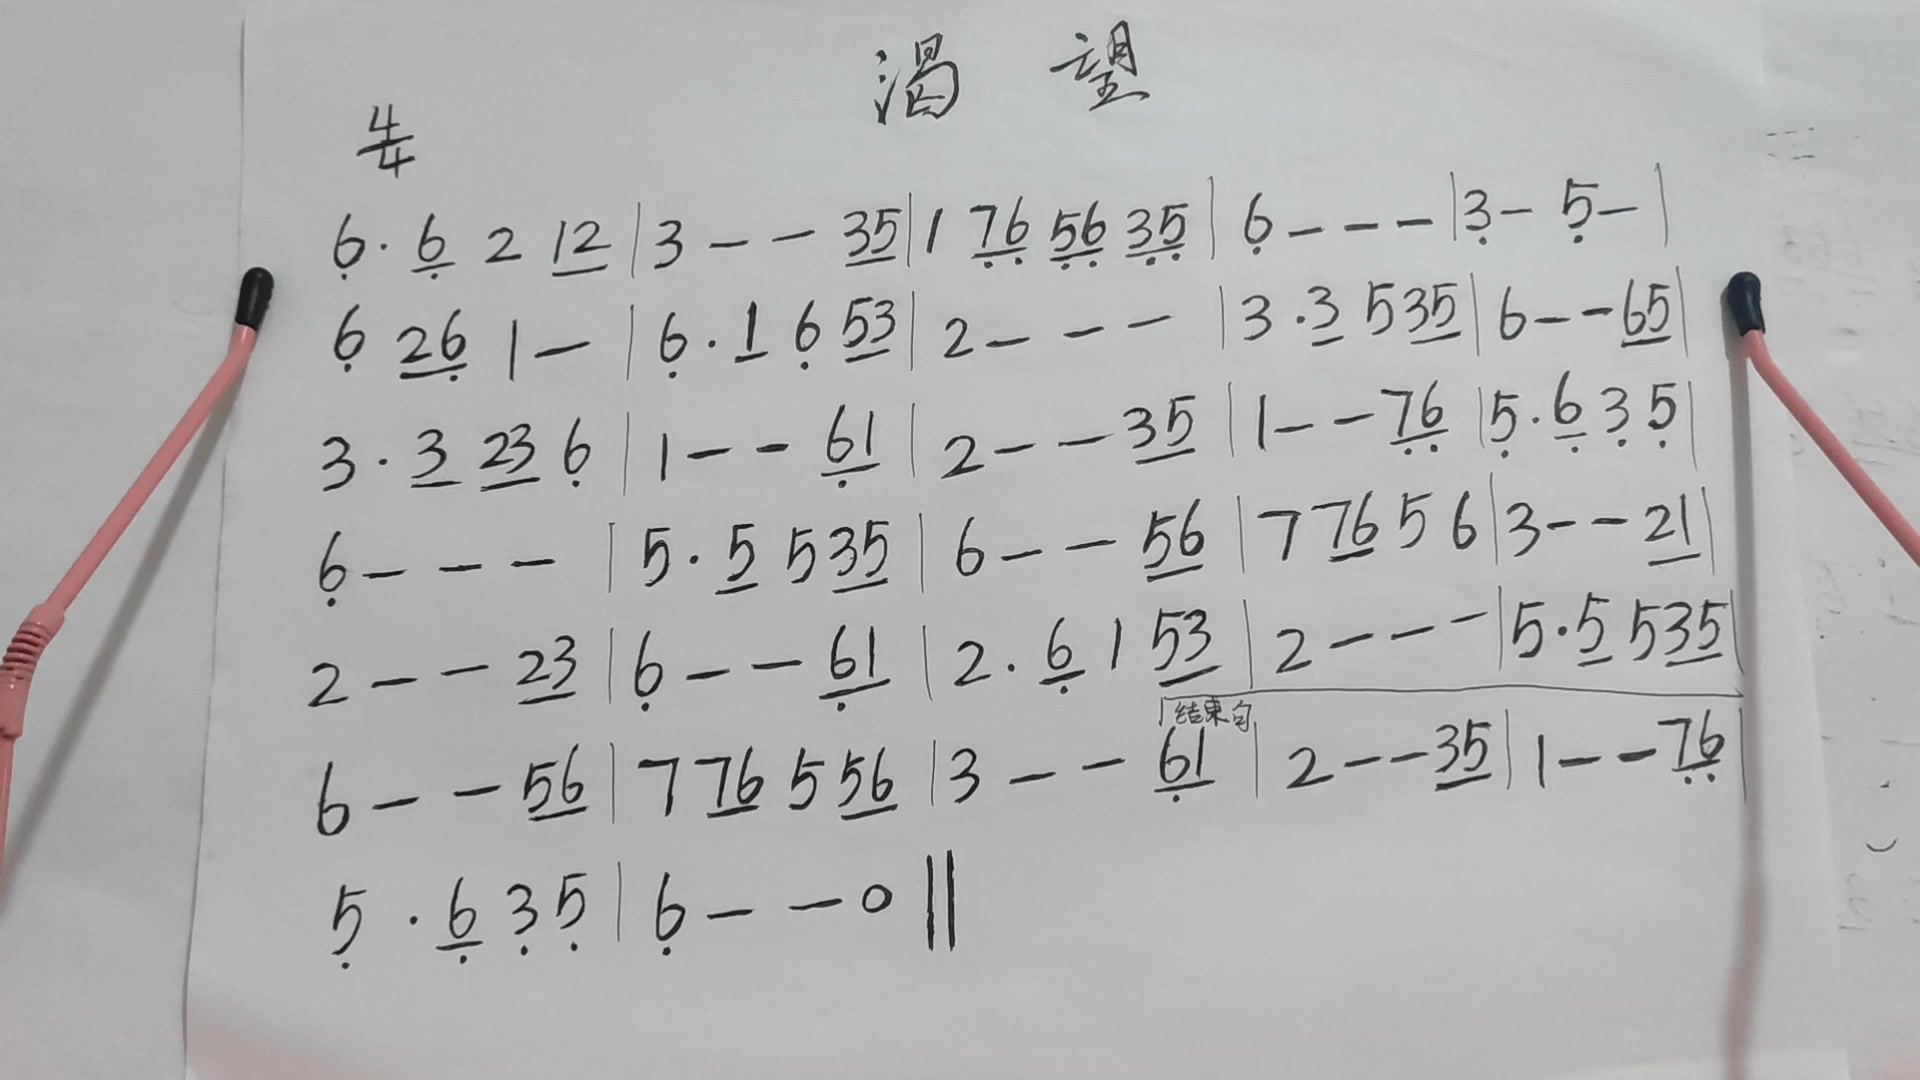 渴 望
4/4
6̣· 6̣ 2 12 | 3 - - 35 | 1 7̣6̣ 5̣6̣ 3̣5̣ | 6̣ - - - | 3̣ - 5̣ - |
6̣ 26̣ 1 - | 6̣· 1 6̣ 53 | 2 - - - | 3· 3 5 35 | 6 - - 65 |
3· 3 23 6̣ | 1 - - 6̣1 | 2 - - 35 | 1 - - 7̣6̣ | 5̣· 6̣ 3̣ 5̣ |
6̣ - - - | 5· 5 5 35 | 6 - - 56 | 7 76 5 6 | 3 - - 21 |
2 - - 23 | 6̣ - - 6̣1 | 2· 6̣ 1 53 | 2 - - - | 5· 5 5 35 |
结束句
6 - - 56 | 7 76 5 56 | 3 - - 6̣1 | 2 - - 35 | 1 - - 7̣6̣ |
5̣· 6̣ 3̣ 5̣ | 6̣ - - 0 ‖